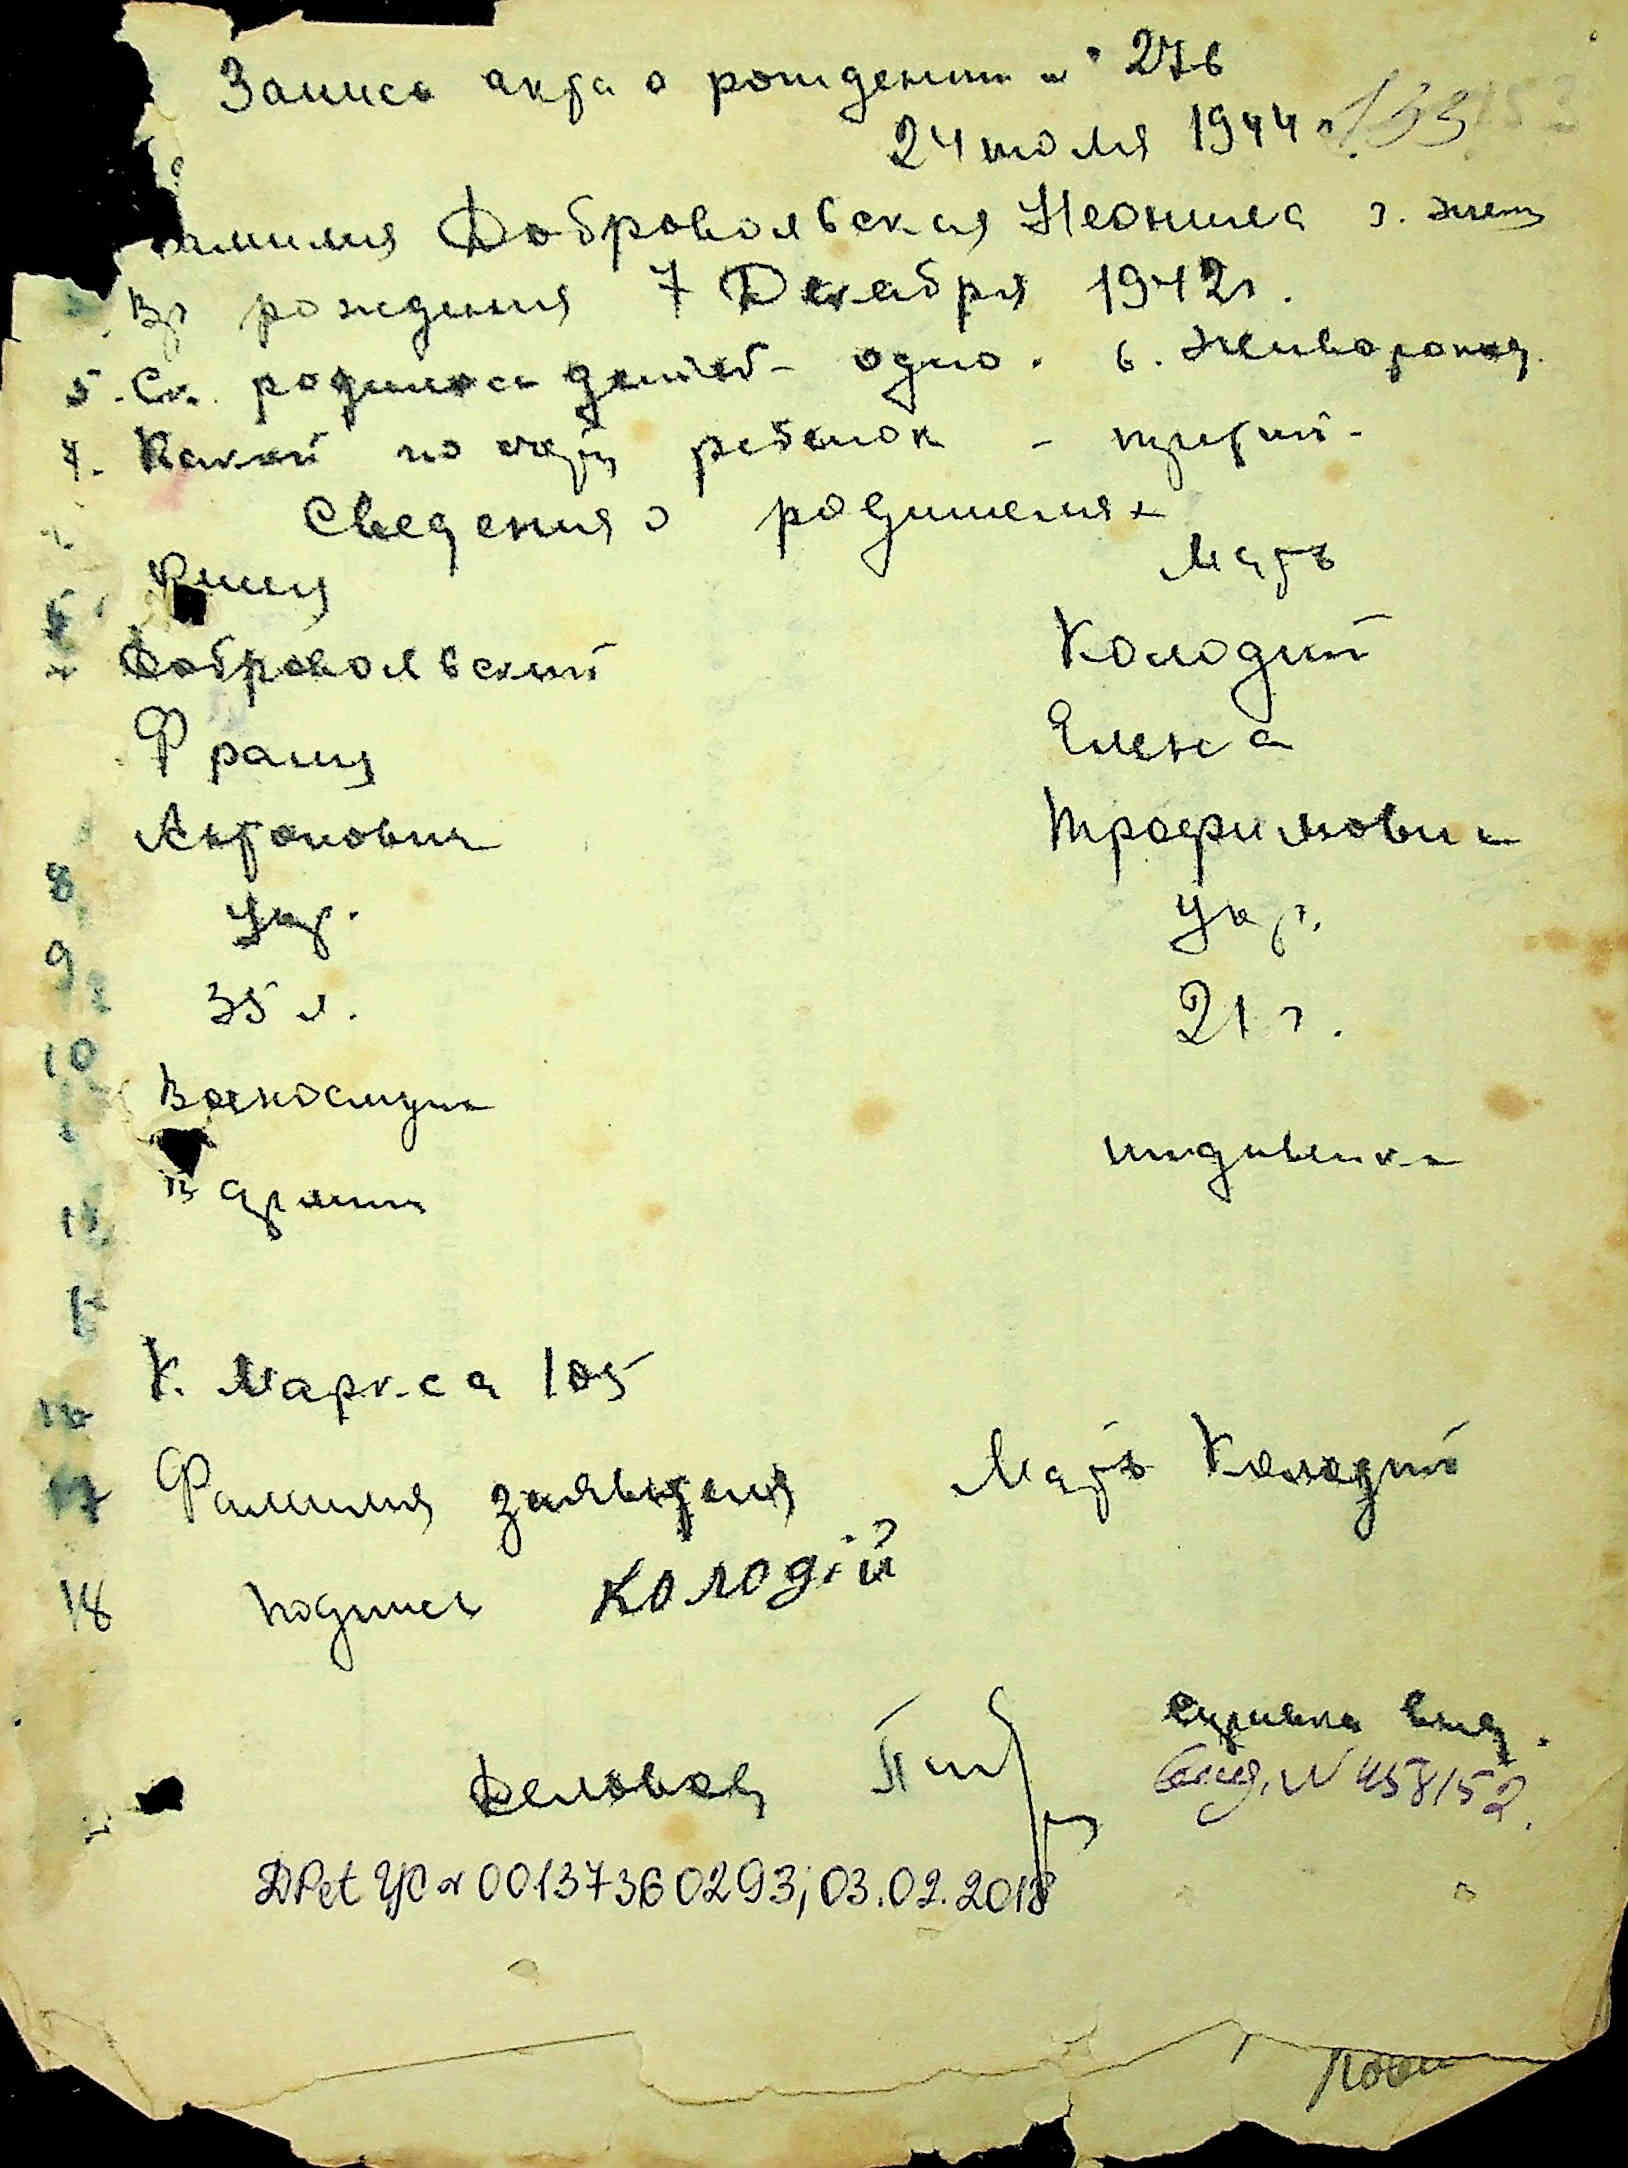 Запись акта о рождении № 276
24 июля 1944 г. 133
Фамилия Добровольская Неонила 3. жен
Вр рождения 7 Декабря 1942 г.
5. Ск. родилось детей - одно. 6. Живорожд.
7. Какой по счету ребенок - третий -
Сведения о родителях
Мать
Добровольский Колодий
Франц Елена
Антонович Трофимовна
Укр. Укр.
35 л. 21 г.
Военнослуж
в армии иждивенка
К. Маркса 105
17 Фамилия заявителя Мать Колодий
18 Подпись Колодій
Деловод
Справка выд.
свид. N 458152.
ДРет УС № 00137360293; 03.02.2018